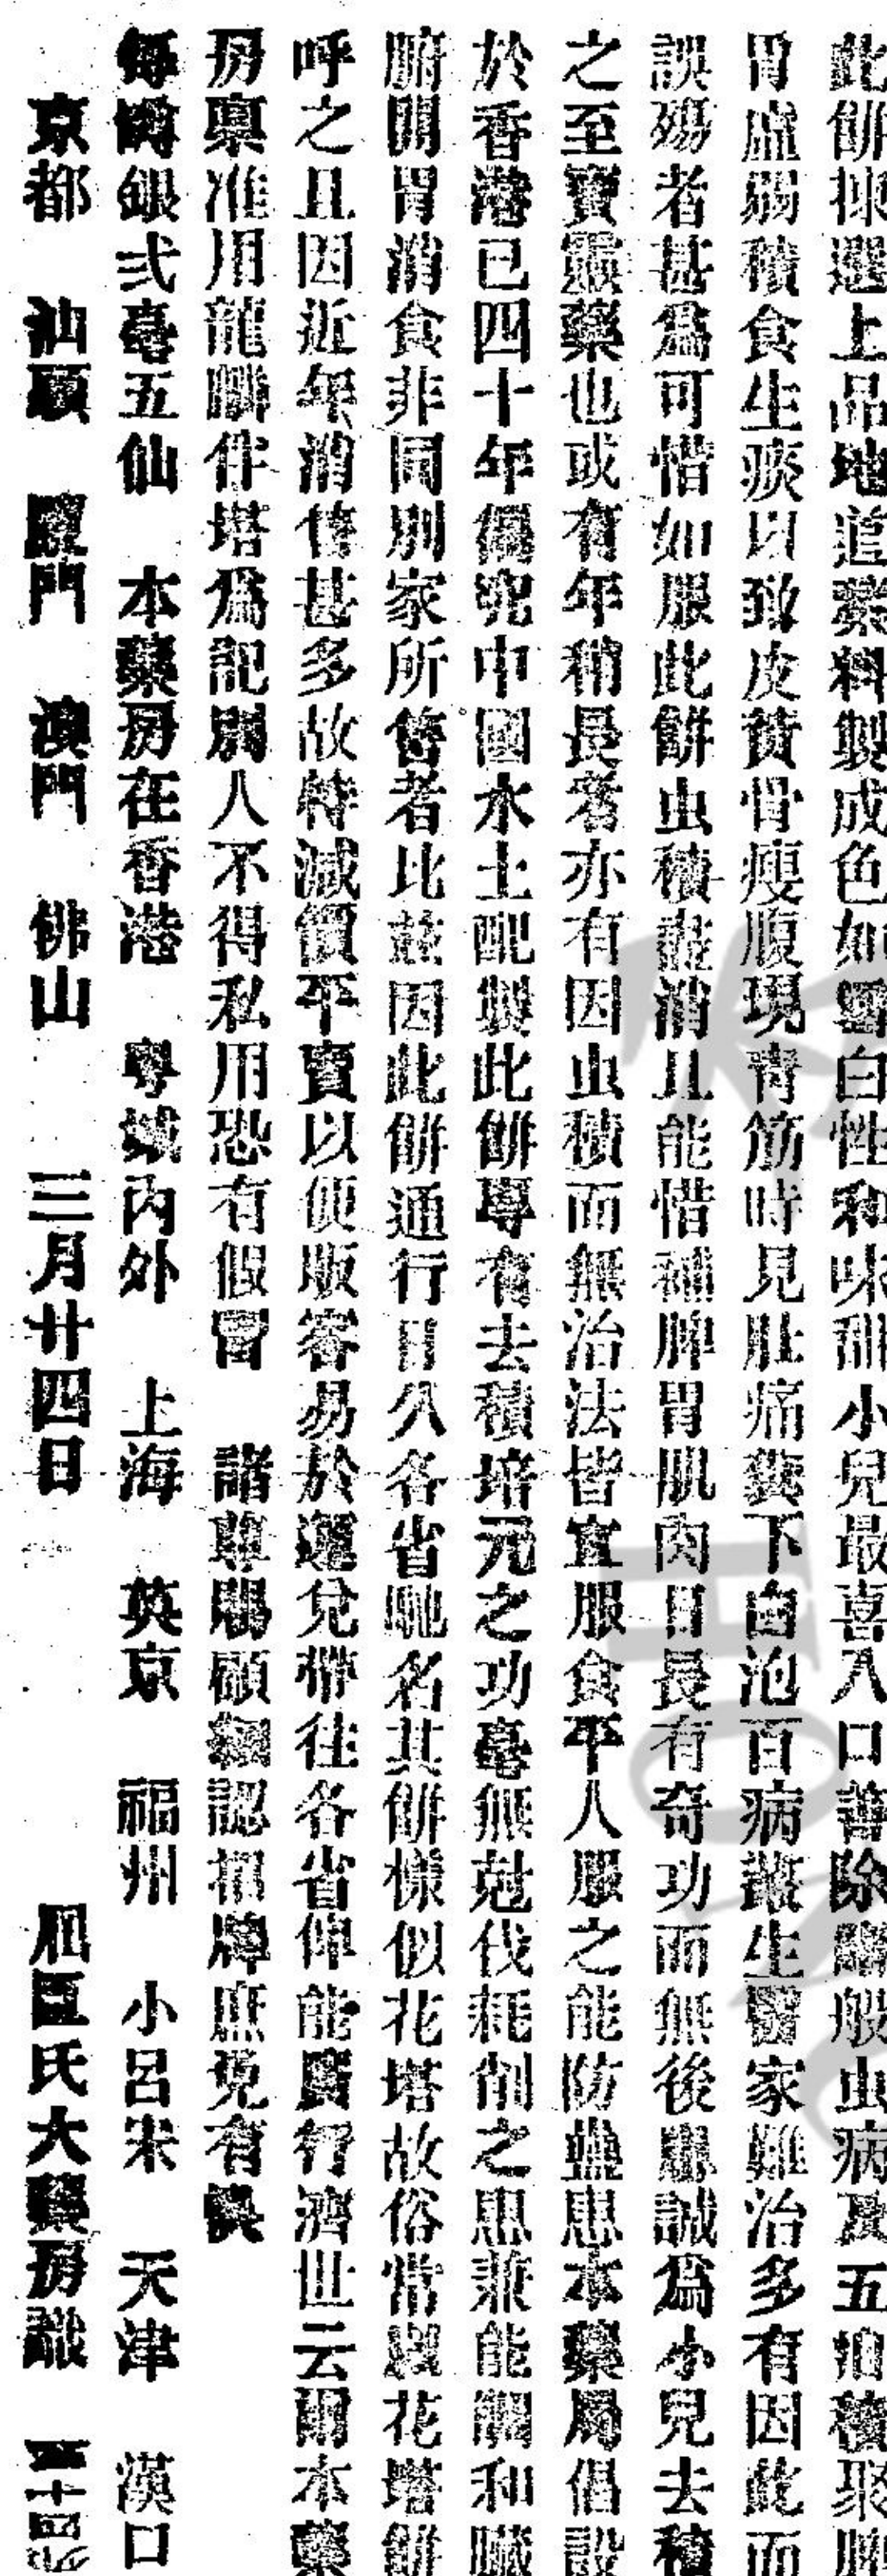 此餅揀選上品地道藥料製成色如雪白性和味甜小兒最喜入口善除諸般虫病及五疳積聚脾
胃虛弱積食生痰以致皮黃骨瘦腹現青筋時見肚痛糞下白泡百病叢生醫家難治多有因此而
誤殤者甚為可惜如服此餅虫積盡消且能惜補脾胃肌肉日長有奇功而無後患誠為小兒去積
之至寶靈藥也或有年稍長者亦有因虫積而無治法皆宜服食平人服之能防蠱患本藥局倡設
於香港已四十年偏究中國水土配製此餅專有去積培元之功毫無尅伐耗削之患兼能調和臟
腑開胃消食非同別家所售者比茲因此餅通行日久各省馳名其餅樣似花塔故俗常以花塔餅
呼之且因近年消售甚多故特減價平賣以便販客易於運兌帶往各省俾能廣行濟世云爾本藥
房稟准用龍麟伴塔為記別人不得私用恐有假冒　諸尊賜顧細認招牌庶免有誤
每樽銀弍毫五仙　本藥房在香港　粵城內外　上海　英京　福州　小呂宋　天津　漢口
京都　汕頭　廈門　澳門　佛山　三月廿四日　屈臣氏大藥房謹